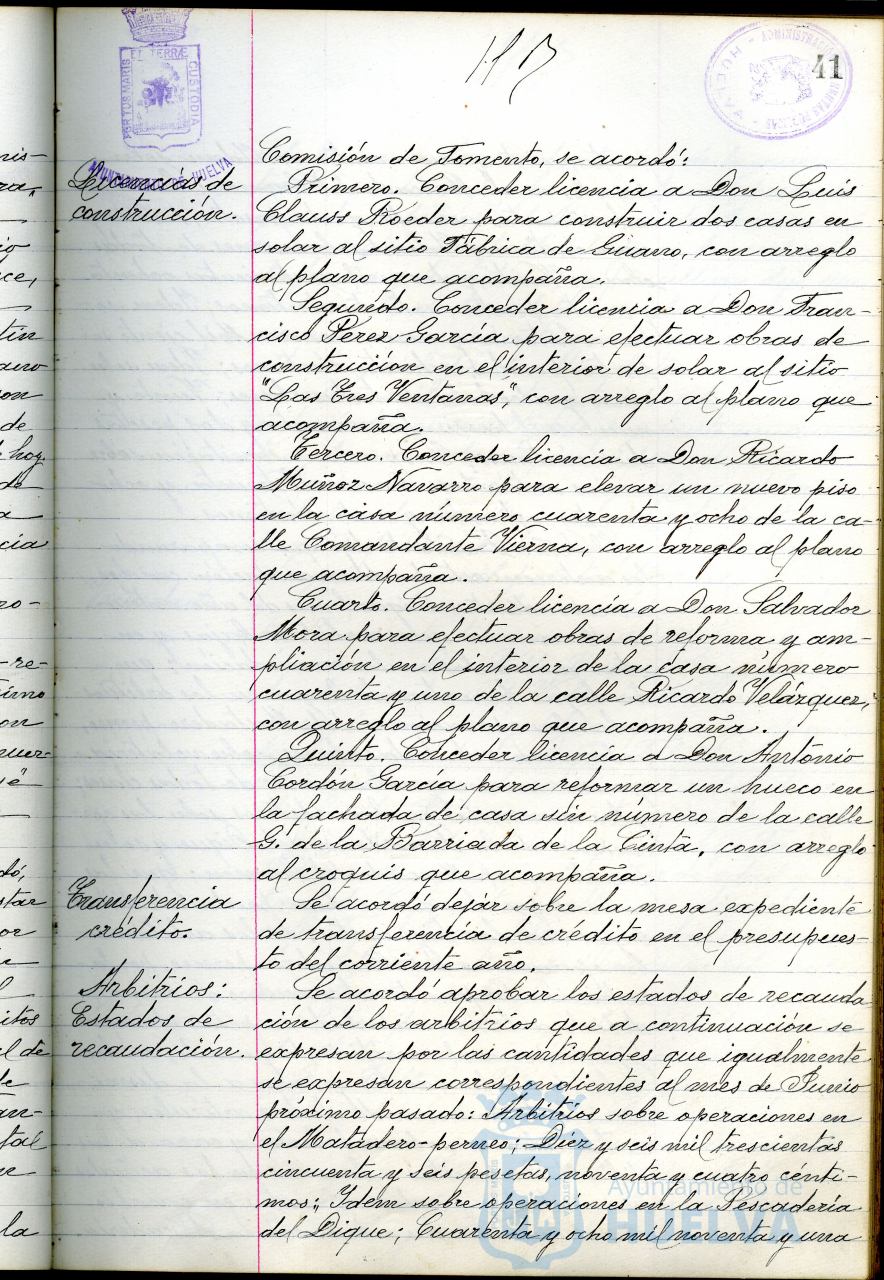 41
PORTUS MARIS ET TERRÆ CUSTODIA
AYUNTAMIENTO DE HUELVA
HUELVA - ADMINISTRACIÓN
Comisión de Fomento, se acordó:
Licencias de
construcción.
Primero. Conceder licencia a Don Luis
Clauss Roeder para construir dos casas en
solar al sitio Fábrica de Guano, con arreglo
al plano que acompaña.
Segundo. Conceder licencia a Don Fran-
cisco Pérez García para efectuar obras de
construcción en el interior de solar al sitio
"Las Tres Ventanas", con arreglo al plano que
acompaña.
Tercero. Conceder licencia a Don Ricardo
Muñoz Navarro para elevar un nuevo piso
en la casa número cuarenta y ocho de la ca-
lle Comandante Vierna, con arreglo al plano
que acompaña.
Cuarto. Conceder licencia a Don Salvador
Mora para efectuar obras de reforma y am-
pliación en el interior de la casa número
cuarenta y uno de la calle Ricardo Velázquez,
con arreglo al plano que acompaña.
Quinto. Conceder licencia a Don António
Cordón García para reformar un hueco en
la fachada de casa sin número de la calle
G. de la Barriada de la Cinta, con arreglo
al croquis que acompaña.
Transferencia
crédito.
Se acordó dejar sobre la mesa expediente
de transferencia de crédito en el presupues-
to del corriente año.
Arbitrios:
Estados de
recaudación.
Se acordó aprobar los estados de recauda
ción de los arbitrios que a continuación se
expresan por las cantidades que igualmente
se expresan correspondientes al mes de Junio
próximo pasado: Arbitrios sobre operaciones en
el Matadero-perneo; Diez y seis mil trescientas
cincuenta y seis pesetas, noventa y cuatro cénti-
mos; Idem sobre operaciones en la Pescadería
del Dique; Cuarenta y ocho mil noventa y una
Ayuntamiento de
HUELVA